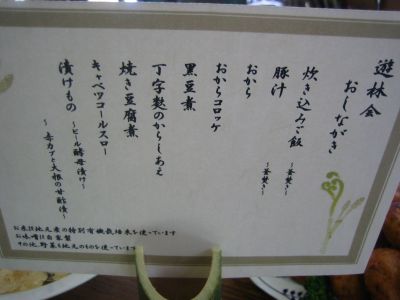 遊林会
おしながき
炊き込みご飯
～釜焚き～
豚汁
～釜焚き～
おから
おからコロッケ
黒豆煮
丁字麩のからしあえ
焼き豆腐煮
キャベツコールスロー
漬けもの
～ビール酵母漬け～
～赤カブと大根の甘酢漬～
お米は地元産の特別有機栽培米を使っています
お味噌は自家製
その他野菜も地元のものを使っています